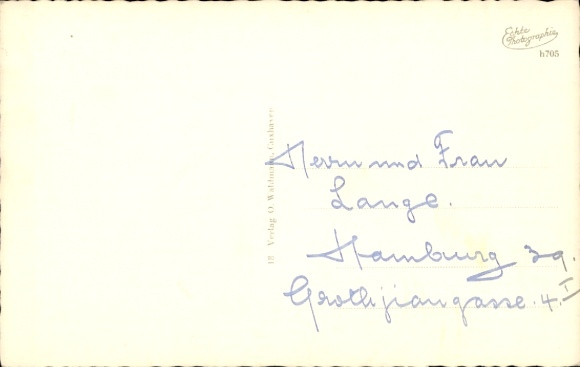 Echte
Photographie
h705
18 Verlag O. Waldmann, Cuxhaven
Herrn und Frau
Lange.
Hamburg 39.